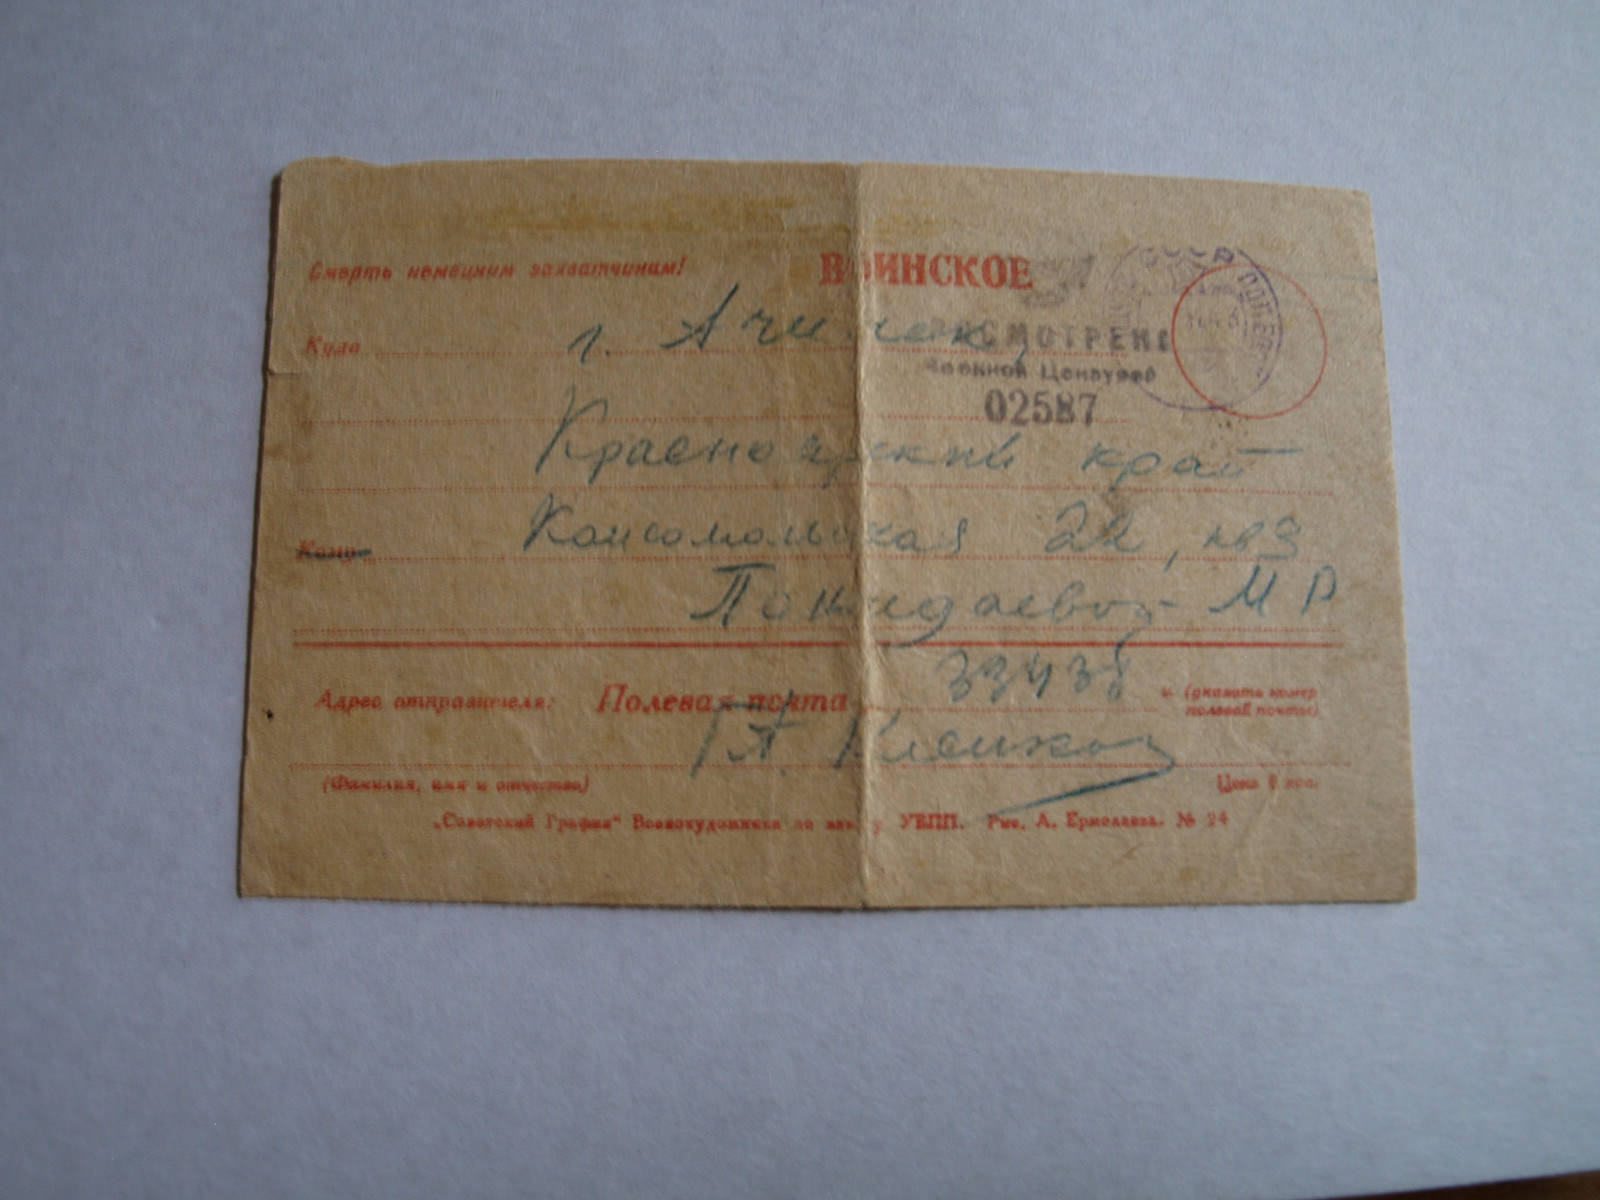 Смерть немецким захватчикам!
ВОИНСКОЕ
СССР ПОЛЕВАЯ
Куда г. Ачинск,
РАССМОТРЕНО
Военной Цензурой
02587
Красноярский край
Кому Комсомольская 22, кв 3
М Р
Адрес отправителя: Полевая почта 33438 и (указать номер
полевой почты)
(Фамилия, имя и отчество)
Цена 6 коп.
„Советский График“ Военхудожника по заказу УВПП. Рис. А. Ермолаева. № 24